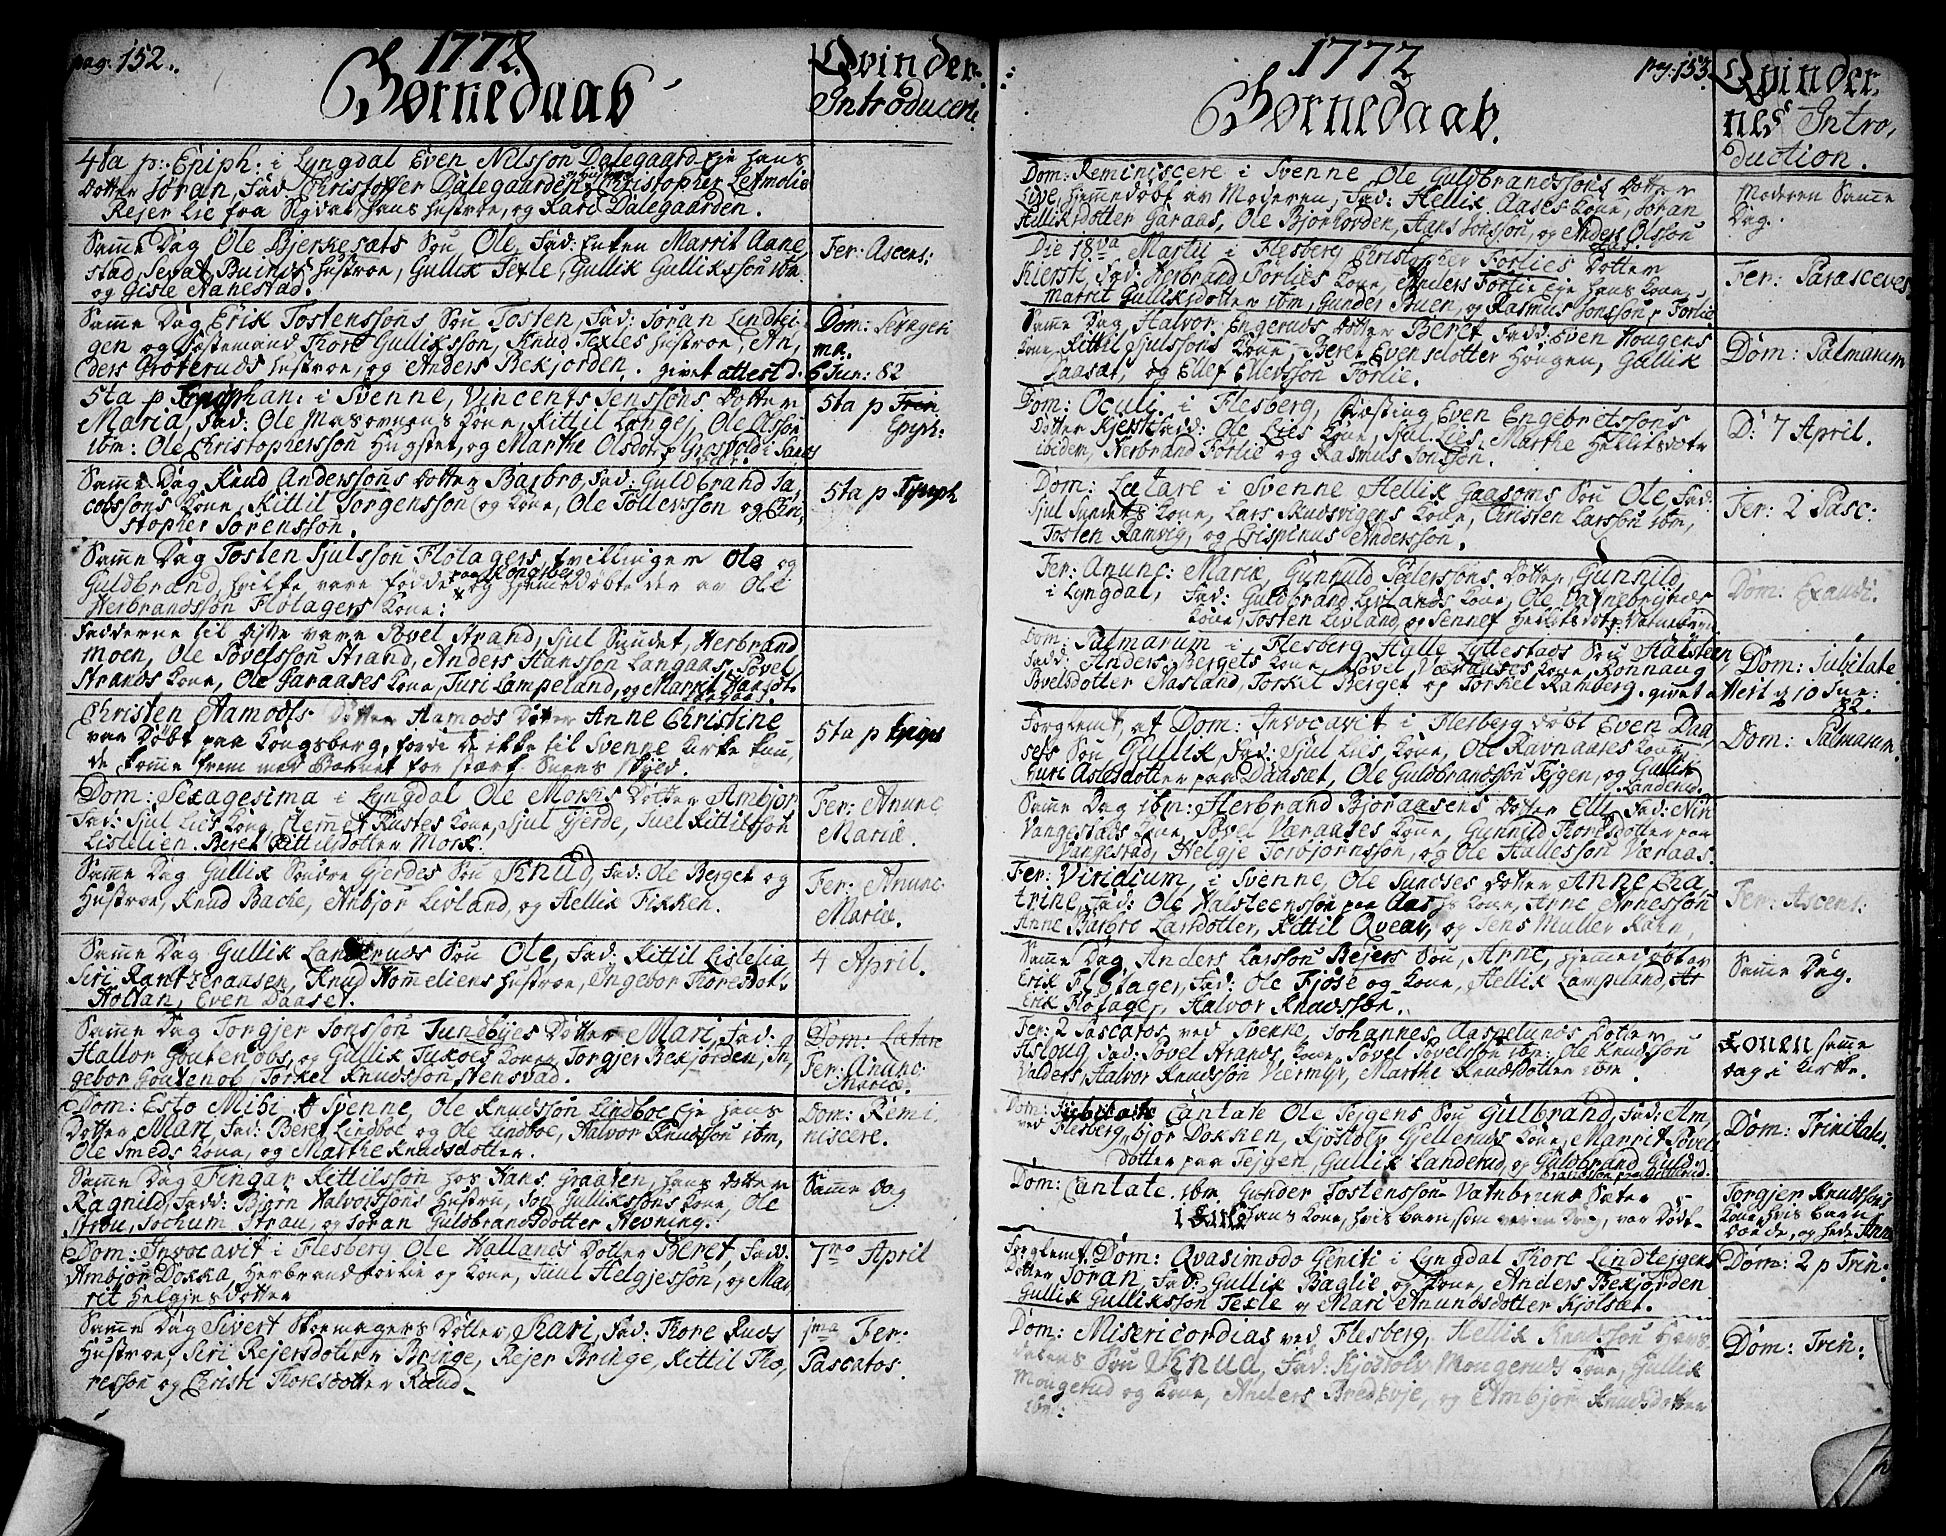 pag. 152.
1772.
Børnedaab
Qvinder
Introducere
4ta p: Epiph. i Lyngdal Even Nilsson Dalegaard Eje hans
Dotter Jøran, Fad Christoffer Dalegaarden, Christopher Letmolie
Rejer Lie fra Sigdal, hans hustroe, og Kari Dalegaarden.
Samme Dag Ole Bjerkesæts Søn Ole, Fad: Enken Marrit Aane
stad, Sevat Buinis hustroe, Gullik Texle, Gullik Gulliksson ibm
og Gisle Aanestad.
Fer: Ascens:
Samme Dag Erik Tostenssøns Søn Tosten, Fad: Jøran Lindtei
gen og Fæstemand Thore Gulliksson, Knud Texles hustroe, An,
ders Grøteruds hustroe, og Anders Bekjorden. givet attest d. 6 Jun: 82
Dom: Sexagesi
ma.
5ta p Epiphan: i Svenne, Vincents Jenssens Dotter
Maria, Fad: Ole Masovnens Kone, Kittil Langej, Ole Olsson
ibm: Ole Christophersson Hugstet, og Marthe Olsdotr Grosvold i Sands
5ta p Trin
Epiph:
Samme Dag Knud Anderssøns Dotter Barbro, Fad: Guldbrand Ja,
cobssøns Kone, Kittil Torgensson og Kone, Ole Tollevsson og Chri,
stopher Sorensson.
5ta p Epiph
Samme Dag Tosten Juulsson Flotagers tvillinger Ole og
Guldbrand, hvilke vare fødde paa Kongsberg og hjemmedøbte der av Ole
Herbrandsson Flotagers Kone:
Fadderne til disse vare Povel Strand, Juul Sundet, Herbrand
Moen, Ole Povelsson Strand, Anders Hansson Langaas, Povel
Strands Kone, Ole Garaases Kone, Turi Lampeland, og Marrit
Christen Aamodts Dotter Aamods Dotter Anne Christine
var Døbt paa Kongsberg, fordi de ikke til Svenne Kirke kun,
de komme frem med Barnet for stærk Snees skyld.
5ta p Epiph
Dom: Sexagesima i Lyngdal Ole Morks Dotter Ambjør
Fad: Juul Lies Kone, Clemmet Rustes Kone, Juul Gjerde, Juel Kittilsson
Lislelien, Beret Kittilsdotter Mork.
Fer: Anunc
Mariæ.
Samme Dag Gullik Søndre Gjerdes Søn Knud, Fad: Ole Berget og
Hustroe, Knud Bache, Anbjør Livland, og Hellik Fikken.
Fer: Anunc
Mariæ.
Samme Dag Gullik Landeruds Søn Ole, Fad: Kittil Lislelia
Siri Kantzeraasen, Knud Hommeliens hustroe, Ingebor Thoresdot:
Holtan, Even Daaset.
4 April.
Samme Dag Torgjer Jonsson Tundbyes Dotter Mari, Fad:
Hallor Goutenobs, og Gullik Tukols Kone, Torgjer Bekjorden, In,
gebor Goutenob, Torkel Knudsson Stensvad.
Dom: Lætare
Fer: Anunc:
Mariæ
Dom: Esto Mihi i Svenne, Ole Knudsson Lindboe Eje hans
Dotter Mari, Fad: Beret Lindboe og Ole Lindboe, Halvor Knudsson ibm,
Ole Smeds Kone, og Marthe Knudsdotter.
Dom: Remi
niscere.
Samme Dag Fingar Kittilsson hos Hans Graaten, hans Dotter
Ragnild, Fadd: Bjørn Halvorssons Hustru, Joe Gullikssøns Kone, Ole
Strau, Jochum Strau, og Jøran Guldbrandsdotter Nevning.
Samme Dag
Dom: Invocavit i Flesberg Ole Hallands Dotter Beret, Fad:
Ambjør Dokka, Herbrand Forlie og Kone, Juul Helgjesson, og Mar
rit Helgjesdotter
7mo April
Samme Dag Sivert Skomagers Dotter, Kari, Fad: Thore Ruds
Hustroe, Siri Rejersdotter Bringe, Rejer Bringe, Kittil Tho,
resson og Christi Thoresdotter Ruud.
pma Fer:
Pascatos.
1772
pag: 153.
Børnedaab.
Qvinder,
nes Intro,
duction.
Dom: Reminiscere i Svenne Ole Guldbrandssøns Dotter
Live, hjemmedøbt av Moderen, Fad: Hellik Aases Kone, Jøran
Helliksdotter Garaas, Ole Bjønhorden, Hans Jonsson, og Anders Olsson
Moderen Samme
Dag.
Die 18va Martii i Flesberg Christopher Forlies Dotter
Kiersti, Fad: Herbrand Forlies Kone, Anders Forlie Eje hans Kone,
Marrit Gulliksdotter ibm, Gunder Buen, og Rasmus Jonsson, Forlie
Fer: Parasceves
Samme Dag, Halvor Engeruds Dotter Beret Fadd: Even Hougens
Kone, Kittil Juulssøns Kone, Beret Evensdotter Hougen, Gullik
Daasæt, og Ellef Ellefsson Forlie.
Dom: Palmarum
Dom: Oculi. i Flesberg, Husting Even Engebretssøns
Dotter Kjersti, Fad: Ole Lies Kone, Juul Lies, Marthe Helliksdotr
ibidem, Herbrand Forlie og Rasmus Jonsson.
D: 7 April.
Dom: Lætare i Svenne Hellik Gaasoms Søn Ole, Fad:
Juul Sundets Kone, Lars Skudsvigens Kone, Christen Larsson ibm,
Tosten Ramvig, og Crispinus Andersson.
Fer: 2 Pasc:
Fer: Anunc: Mariæ, Gunnuld Peterssøns Dotter, Gunnild,
i Lyngdal, Fad: Guldbrand Livlands Kone, Ole Vatnebrynder
Kone, Tosten Livland, og Jennet Helliksdotr: Vatnebryn
Dom: Exaudi.
Dom: Palmarum i Flesberg Hylle Lyllestads Søn Halsteen
Fadd: Anders Bergets Kone, Povel Væraases Kone, Ronnaug
Povelsdotter Aasland, Torkel Berget og Torkel Ramberg. givet a
Dom: Jubilate
Test d 10 Jun:
82.
Forglemt, at Dom: Invocavit i Flesberg døbt Even Daa
sets Søn Gullik, Fad: Juul Lies Kone, Ole Ravnaases Kone,
Guri Aslesdotter paa Daasæt, Ole Guldbrandsson Tejgen, og Gullik
Landerud.
Dom: Palmarum
Samme Dag ibm: Herbrand Bjøraasens Dotter Elli, Fad: Nin
Vangestads Kone, Povel Væraases Kone, Gunnild Thoresdotter paa
Vangestad, Helgje Torbjørnsson, og Ole Hallesson Væraas.
Fer: Viridium, i Svenne, Ole Sundses Dotter Anne Cha,
trine, Fad: Ole Halsteenssøn paa Aas hs Kone, Arne Arnesson
Anne Barbro Larsdotter, Kittil Qvear, og Jens Muller Kahn,
Fer: Ascens:
Samme Dag Anders Larsson Bejers Søn, Arne, hjemmedøbt av
Erik Flotager, Fad: Ole Fjose og Kone, Hellik Lampeland, Ar
Erik Flotager, Halvor Knudsson.
Samme Dag.
Fer: 2 Pascatos ved Svenne, Johannes Aaspelunds Dotter
Asloug, Fad: Povel Strands Kone, Povel Povelsson ibm: Ole Knudsson
Valders, Halvor Knudsson Vermyr, Marthe Knudsdotter ibm.
Konen samme
dag i Kirke.
Dom: Jubilate Cantate Ole Tejgens Søn Gulbrand, Fad: Am,
ved Flesberg, bjør Dokken, Kjostolv Gjelleruds Kone, Marrit Povels
dotter paa Tejgen, Gullik Landerud, og Guldbrand Guld
brandsson paa Gullerud.
Dom: Trinitatis
Dom: Cantate. ibm. Gunder Tostensson Vatnbruns Søter
i Kirke hans Kone, hvis barn som var en Dreng, var Død f.
Torgjer Knudssøns
Kone, hvis barn
døde, og hede Anne
Forglemt. Dom: Qvasimodo Geniti i Lyngdal Thore Lindtejgens
Dotter Jøran, Fad: Gullik Baglie og Kone, Anders Bekjorden
Gullik Gulliksson Texle og Mari Amundsdotter Kjolsæt.
Dom: 2 p Trin:
Dom: Misericordias ved Flesberg, Hellik Knudsson
Søn Knud, Fad: Kjostolv Mongeruds Kone, Gullik
Mongerud og Kone, Anders Bredevje, og Ambjør Knudsdotter
ibm:
Dom: Trin: